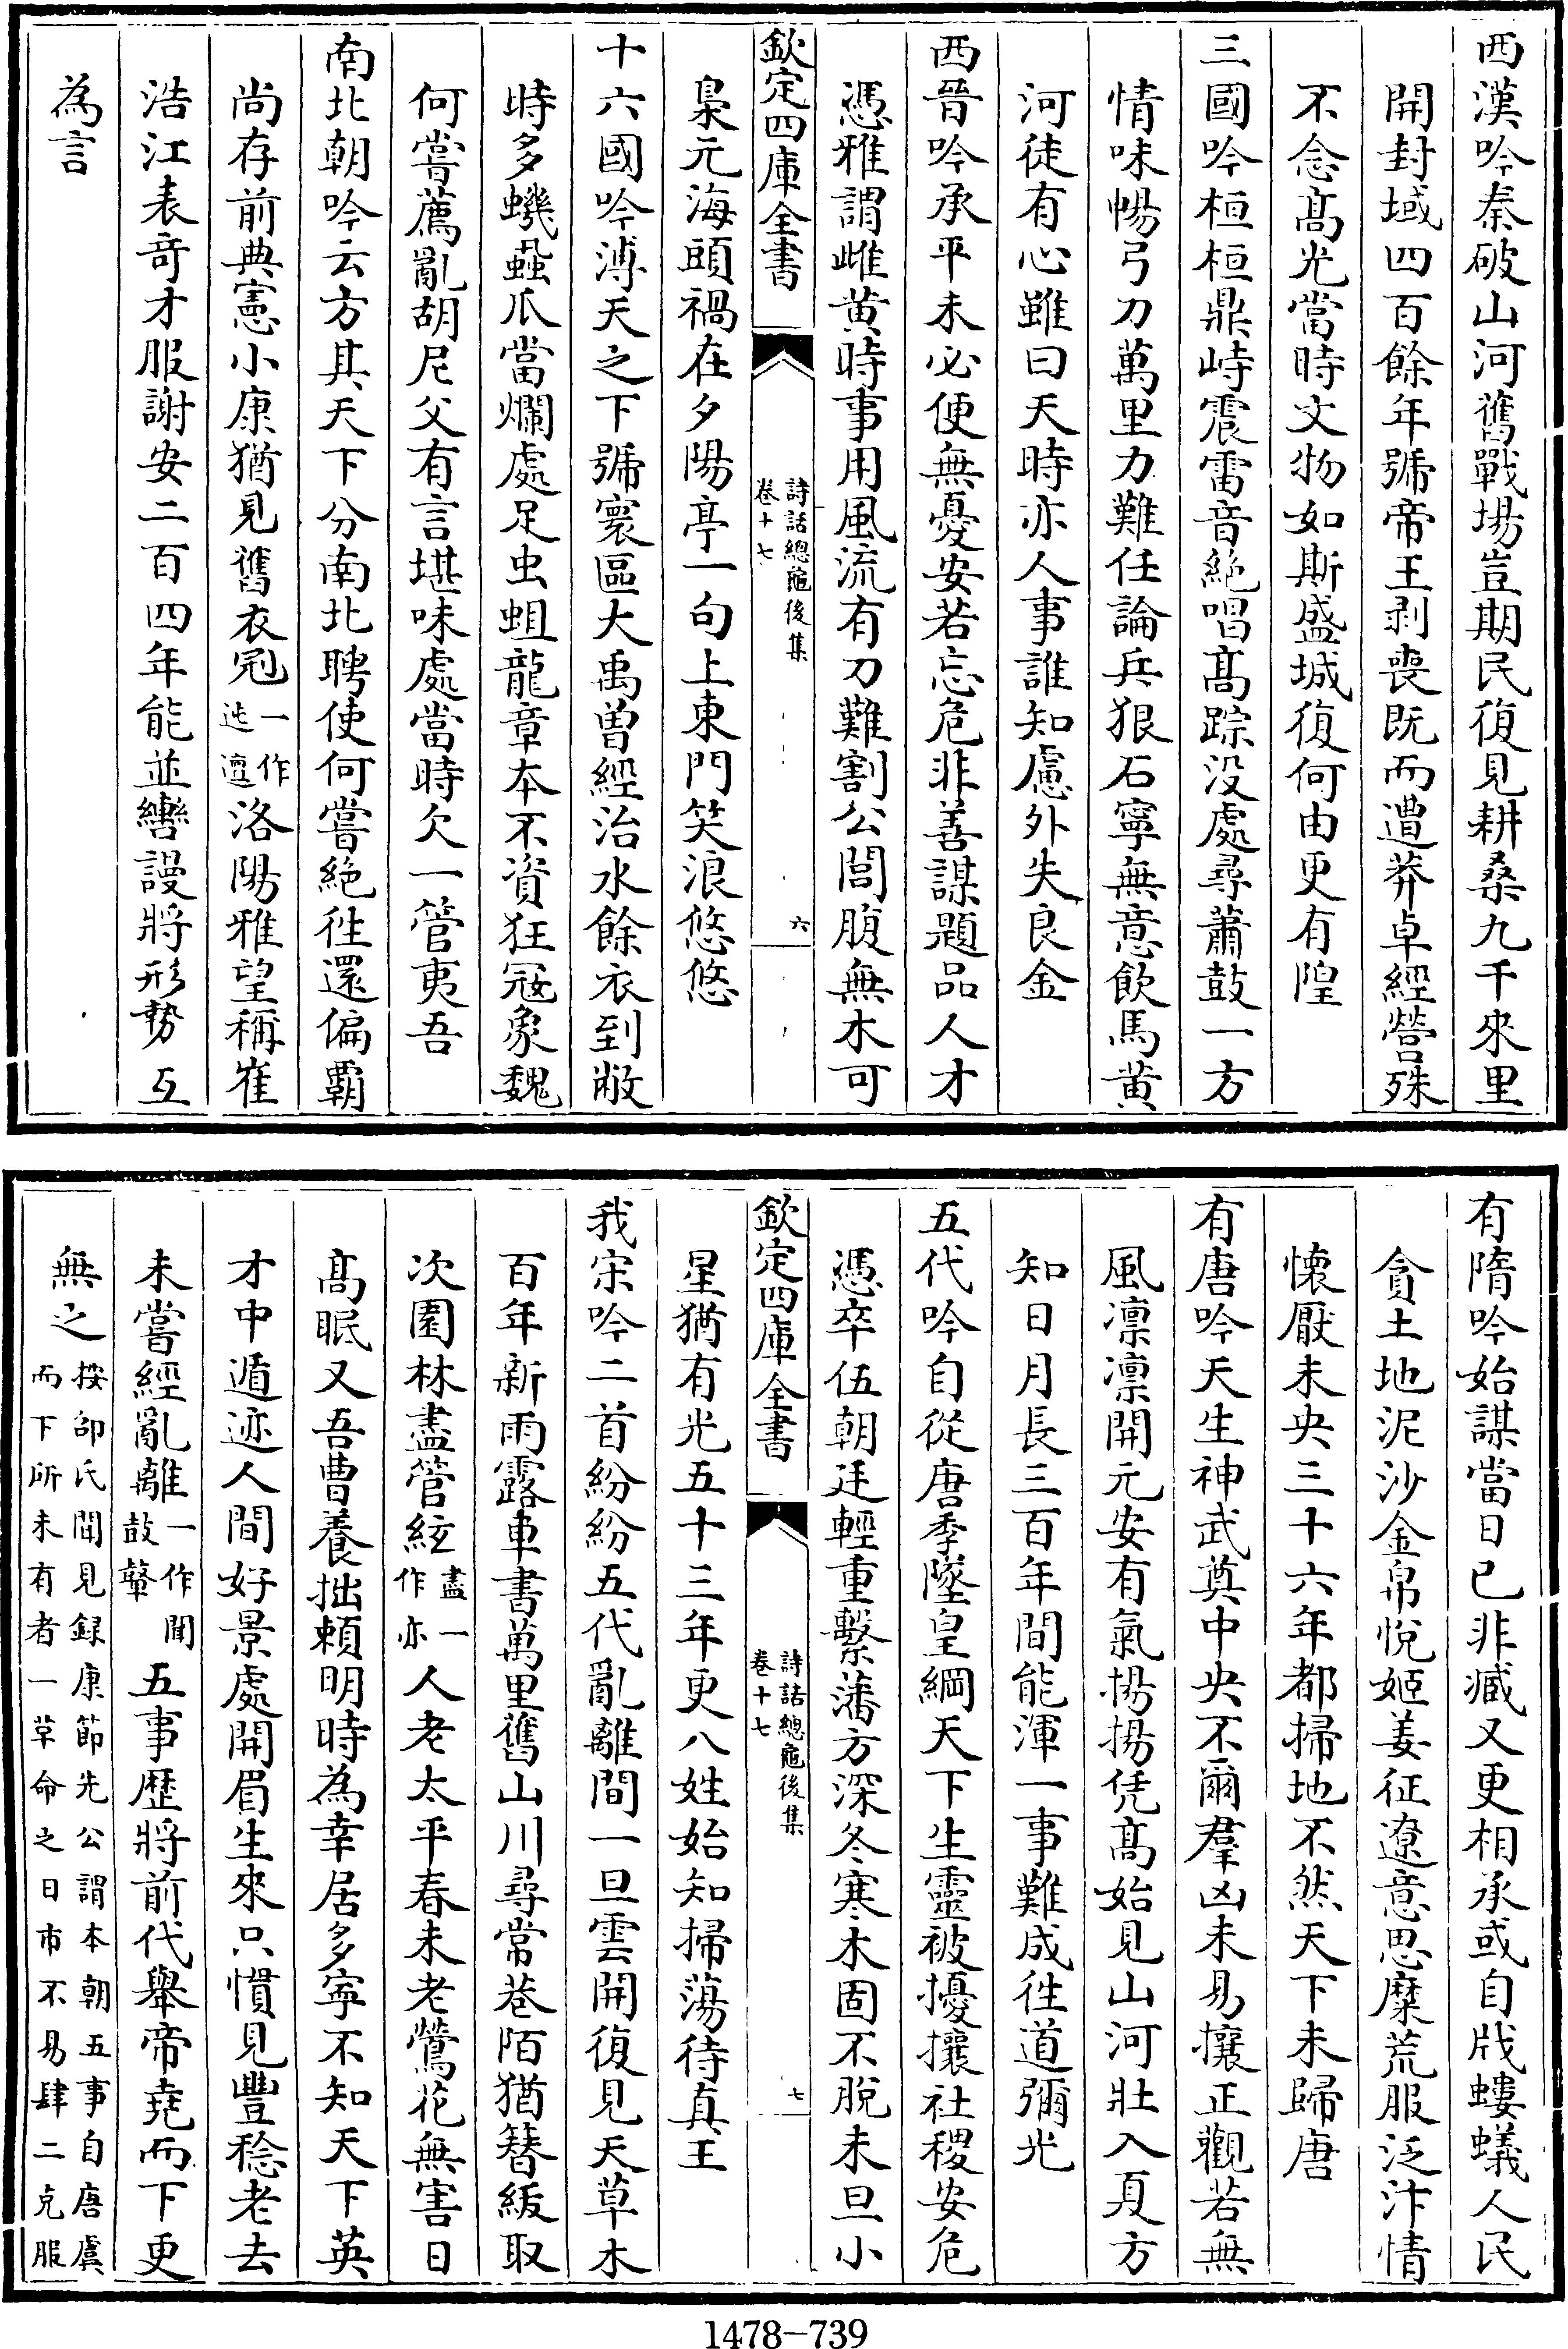 西漢吟秦破山河舊戰場豈期民復見耕桑九千來里
開封域四百餘年號帝王剥喪既而遭莽卓經營殊
不念髙光當時文物如斯盛城復何由更有隍
三國吟桓桓鼎峙震雷音絶唱髙踪没處尋蕭鼓一方
情味暢弓刀萬里力難任論兵狠石寧無意飲馬黄
河徒有心雖曰天時亦人事誰知慮外失良金
西晉吟承平未必便無憂安若忘危非善謀題品人才
憑雅謂雌黄時事用風流有刀難割公閭腹無木可
欽定四庫全書
詩話總龜後集
卷十七
六
梟元海頭禍在夕陽亭一句上東門笑浪悠悠
十六國吟溥天之下號寰區大禹曽經治水餘衣到敝
時多蟣蝨瓜當爛處足虫蛆龍章本不資狂冦象魏
何嘗薦亂胡尼父有言堪味處當時欠一管夷吾
南北朝吟云方其天下分南北聘使何嘗絶徃還偏霸
尚存前典憲小康猶見舊衣冠一作迍邅洛陽雅望稱崔
浩江表竒才服謝安二百四年能並轡謾將形勢互
為言
有隋吟始謀當日已非臧又更相承或自戕螻蟻人民
貪土地泥沙金帛悅姬姜征遼意思糜荒服泛汴情
懐厭未央三十六年都掃地不然天下未歸唐
有唐吟天生神武奠中央不爾羣凶未易攘正觀若無
風凛凛開元安有氣揚揚凭髙始見山河壯入夏方
知日月長三百年間能渾一事難成徃道彌光
五代吟自從唐季墜皇綱天下生靈被擾攘社稷安危
憑卒伍朝廷輕重繫藩方深冬寒木固不脫未旦小
欽定四庫全書
詩話總龜後集
卷十七
七
星猶有光五十三年更八姓始知掃蕩待真王
我宋吟二首紛紛五代亂離間一旦雲開復見天草木
百年新雨露車書萬里舊山川尋常巷陌猶簪紱取
次園林盡管絃盡一作亦人老太平春未老鶯花無害日
髙眠又吾曹養拙頼明時為幸居多寧不知天下英
才中遁迹人間好景處開眉生來只慣見豐稔老去
未嘗經亂離一作聞鼓鼙五事歴將前代舉帝堯而下更
無之按邵氏聞見録康節先公謂本朝五事自唐虞
而下所未有者一革命之日市不易肆二克服
1478-739